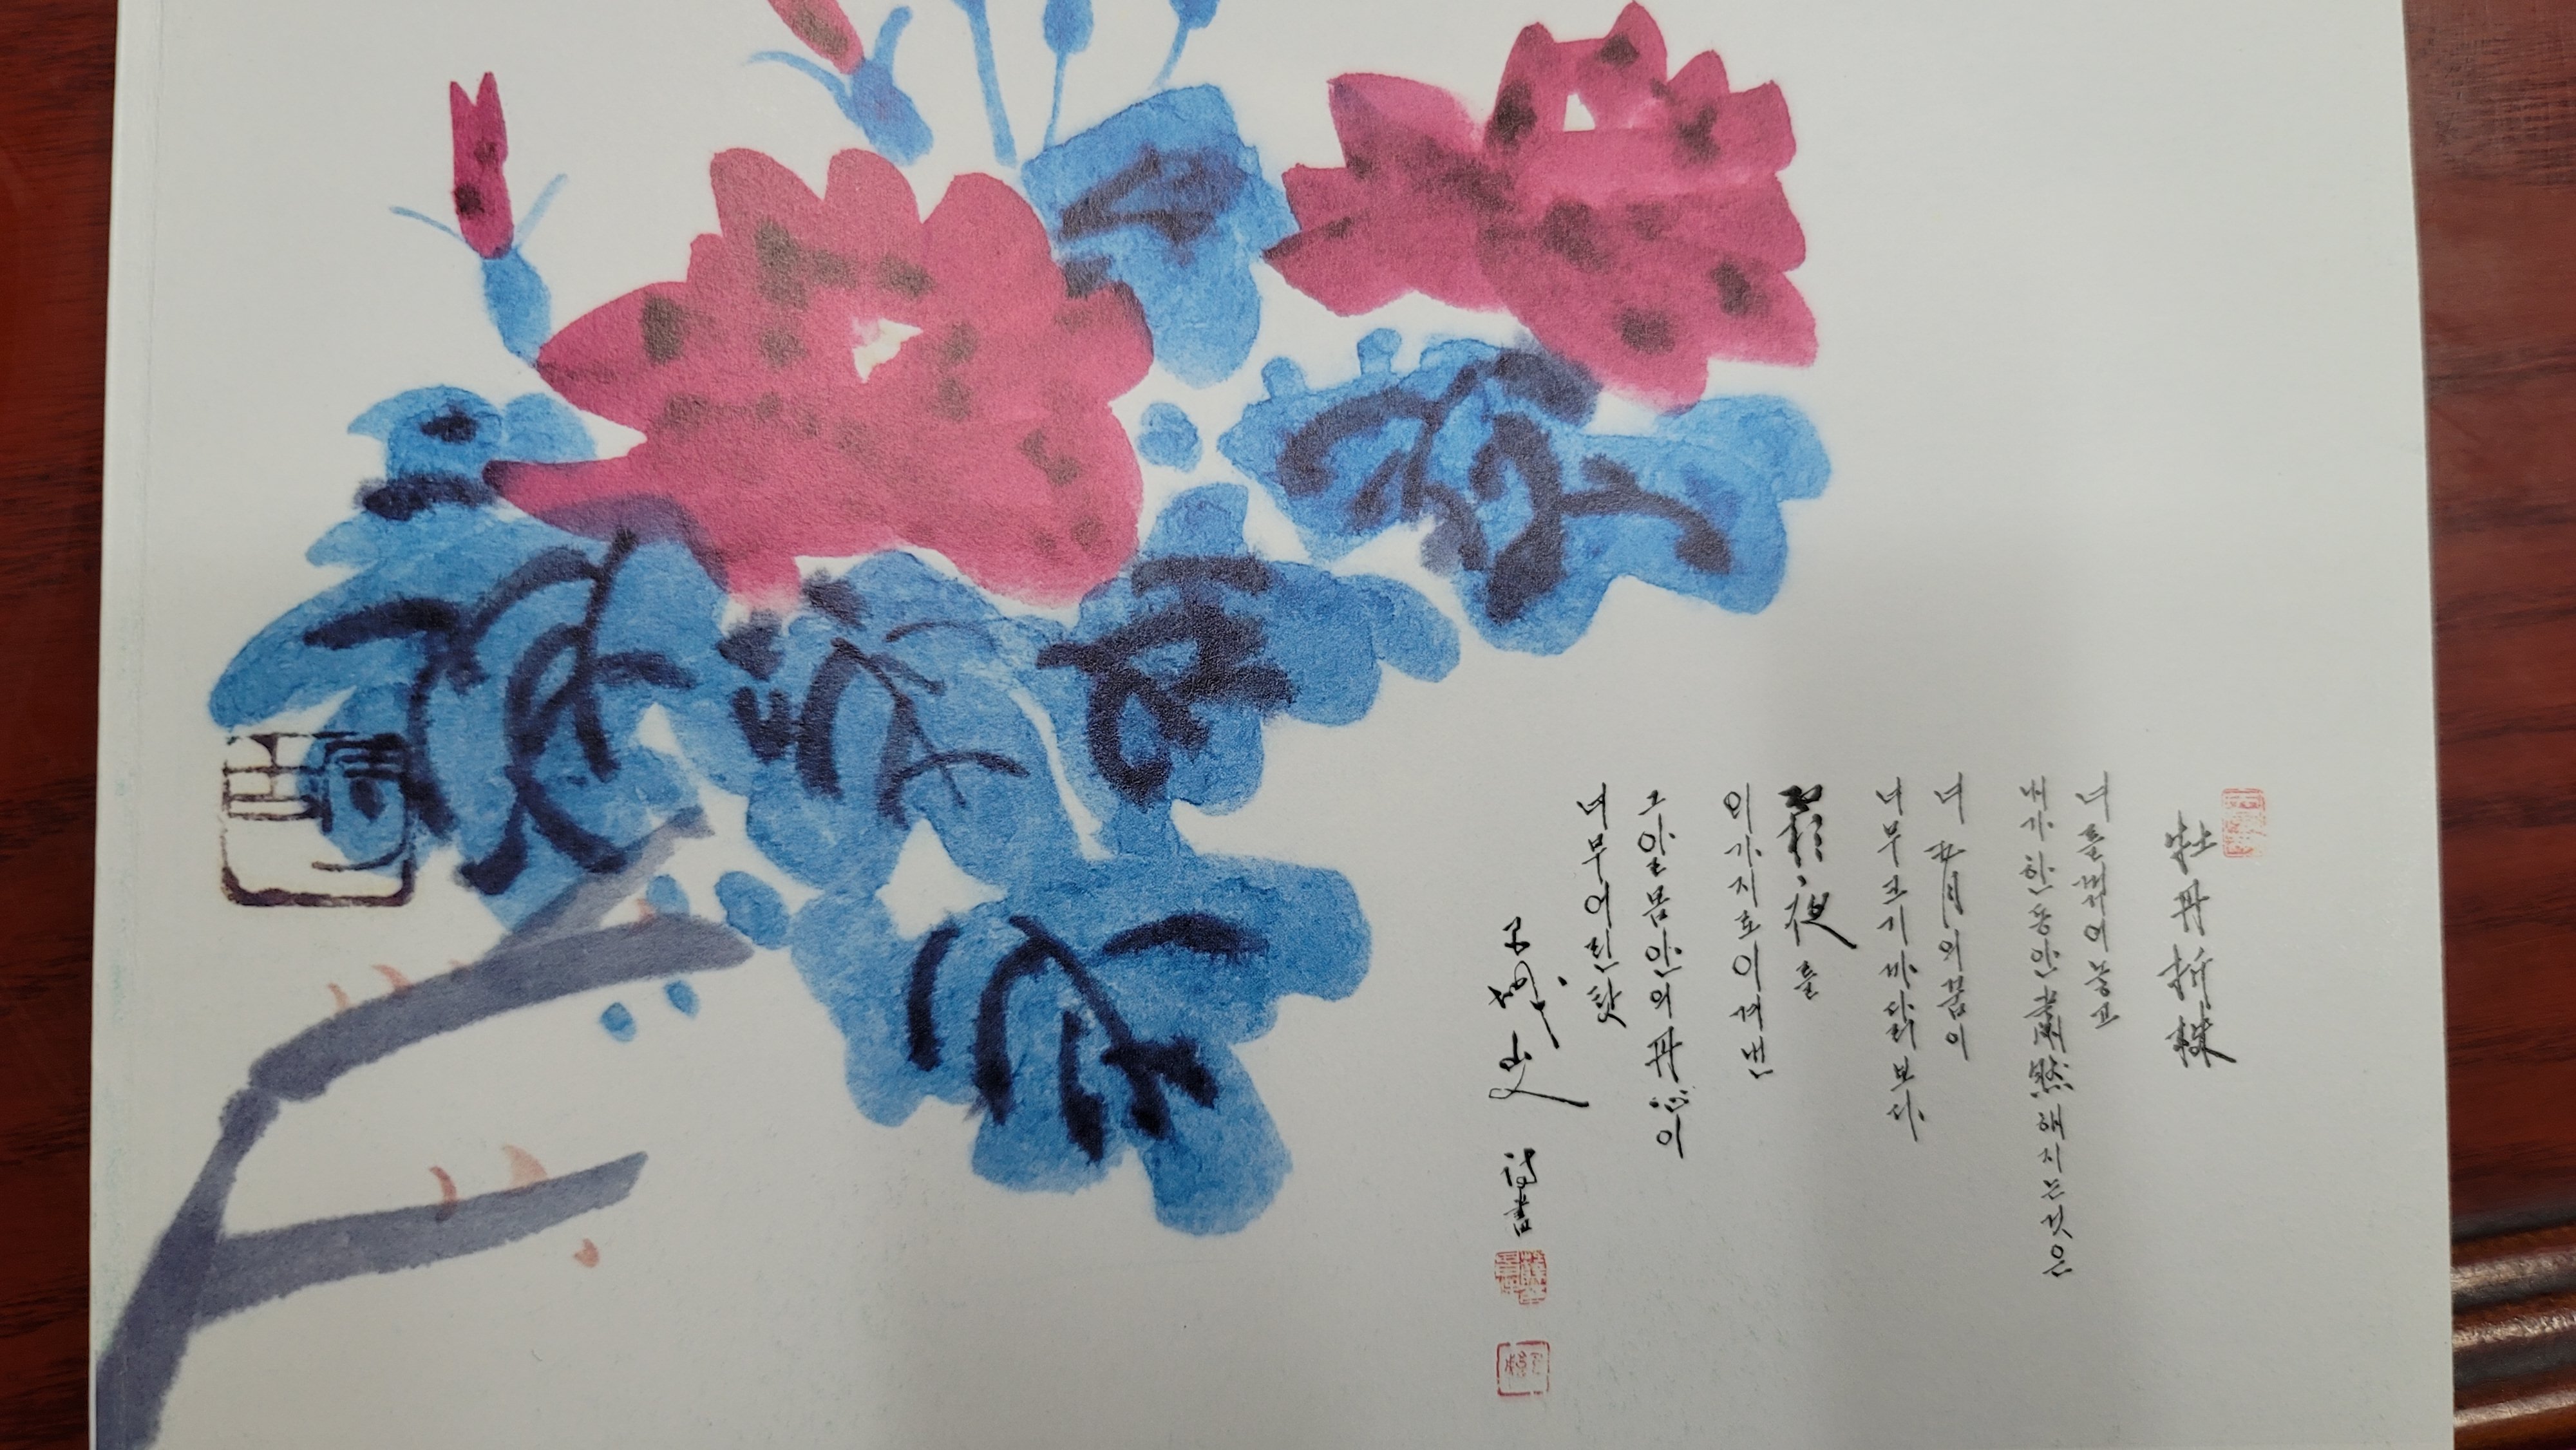 牡丹折枝
너를 꺾어 놓고
내가 한동안 肅然해지는 것은
너 五月의 꿈이
너무 크기 까닭보다
夜를
이 가지로 이겨낸
그 알몸 안의 丹心이
너무 어린 탓
詩書